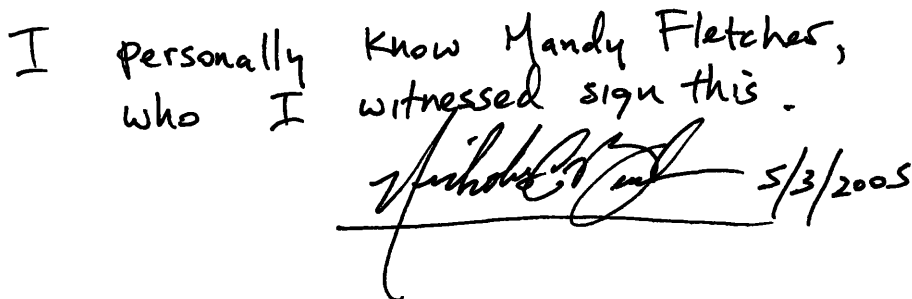 I personally know Mandy Fletcher,
who I witnessed sign this.
5/3/2005